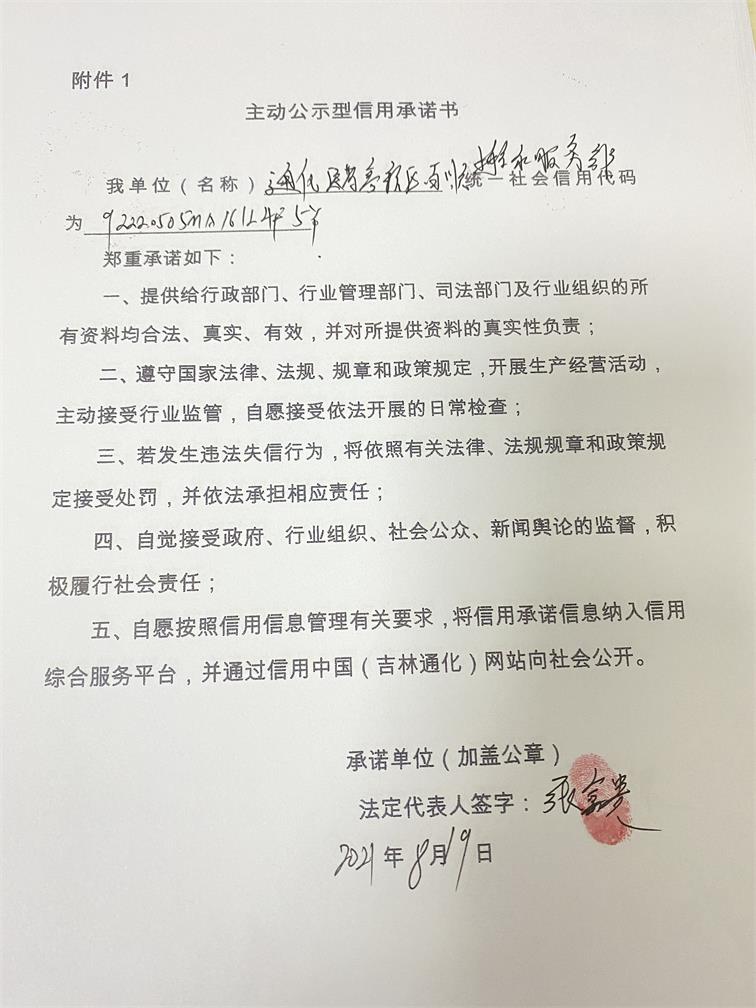 附件 1
主动公示型信用承诺书
我单位（名称）通化医药高新区百顺 服务部 统一社会信用代码
为
郑重承诺如下：
一、提供给行政部门、行业管理部门、司法部门及行业组织的所
有资料均合法、真实、有效，并对所提供资料的真实性负责；
二、遵守国家法律、法规、规章和政策规定，开展生产经营活动，
主动接受行业监管，自愿接受依法开展的日常检查；
三、若发生违法失信行为，将依照有关法律、法规规章和政策规
定接受处罚，并依法承担相应责任；
四、自觉接受政府、行业组织、社会公众、新闻舆论的监督，积
极履行社会责任；
五、自愿按照信用信息管理有关要求，将信用承诺信息纳入信用
综合服务平台，并通过信用中国（吉林通化）网站向社会公开。
承诺单位（加盖公章）
法定代表人签字：张富贵
2021年8月19日